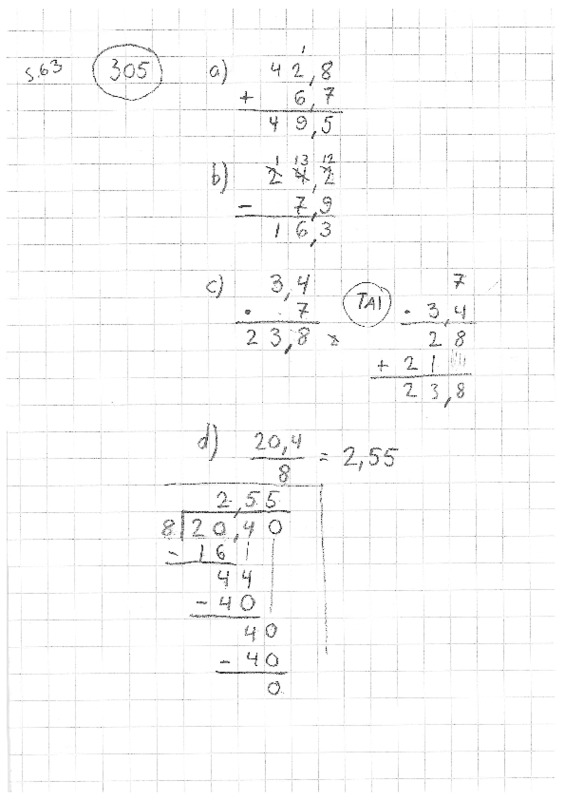 s.63 305 a) 1
42,8
+ 6,7
49,5
b) 1 13 12
24,2
- 7,9
16,3
c) 3,4
· 7
23,8
TAI
7
· 3,4
28
+ 21
23,8
d) 20,4
8
= 2,55
2,55
8 20,40
- 16
44
- 40
40
- 40
0